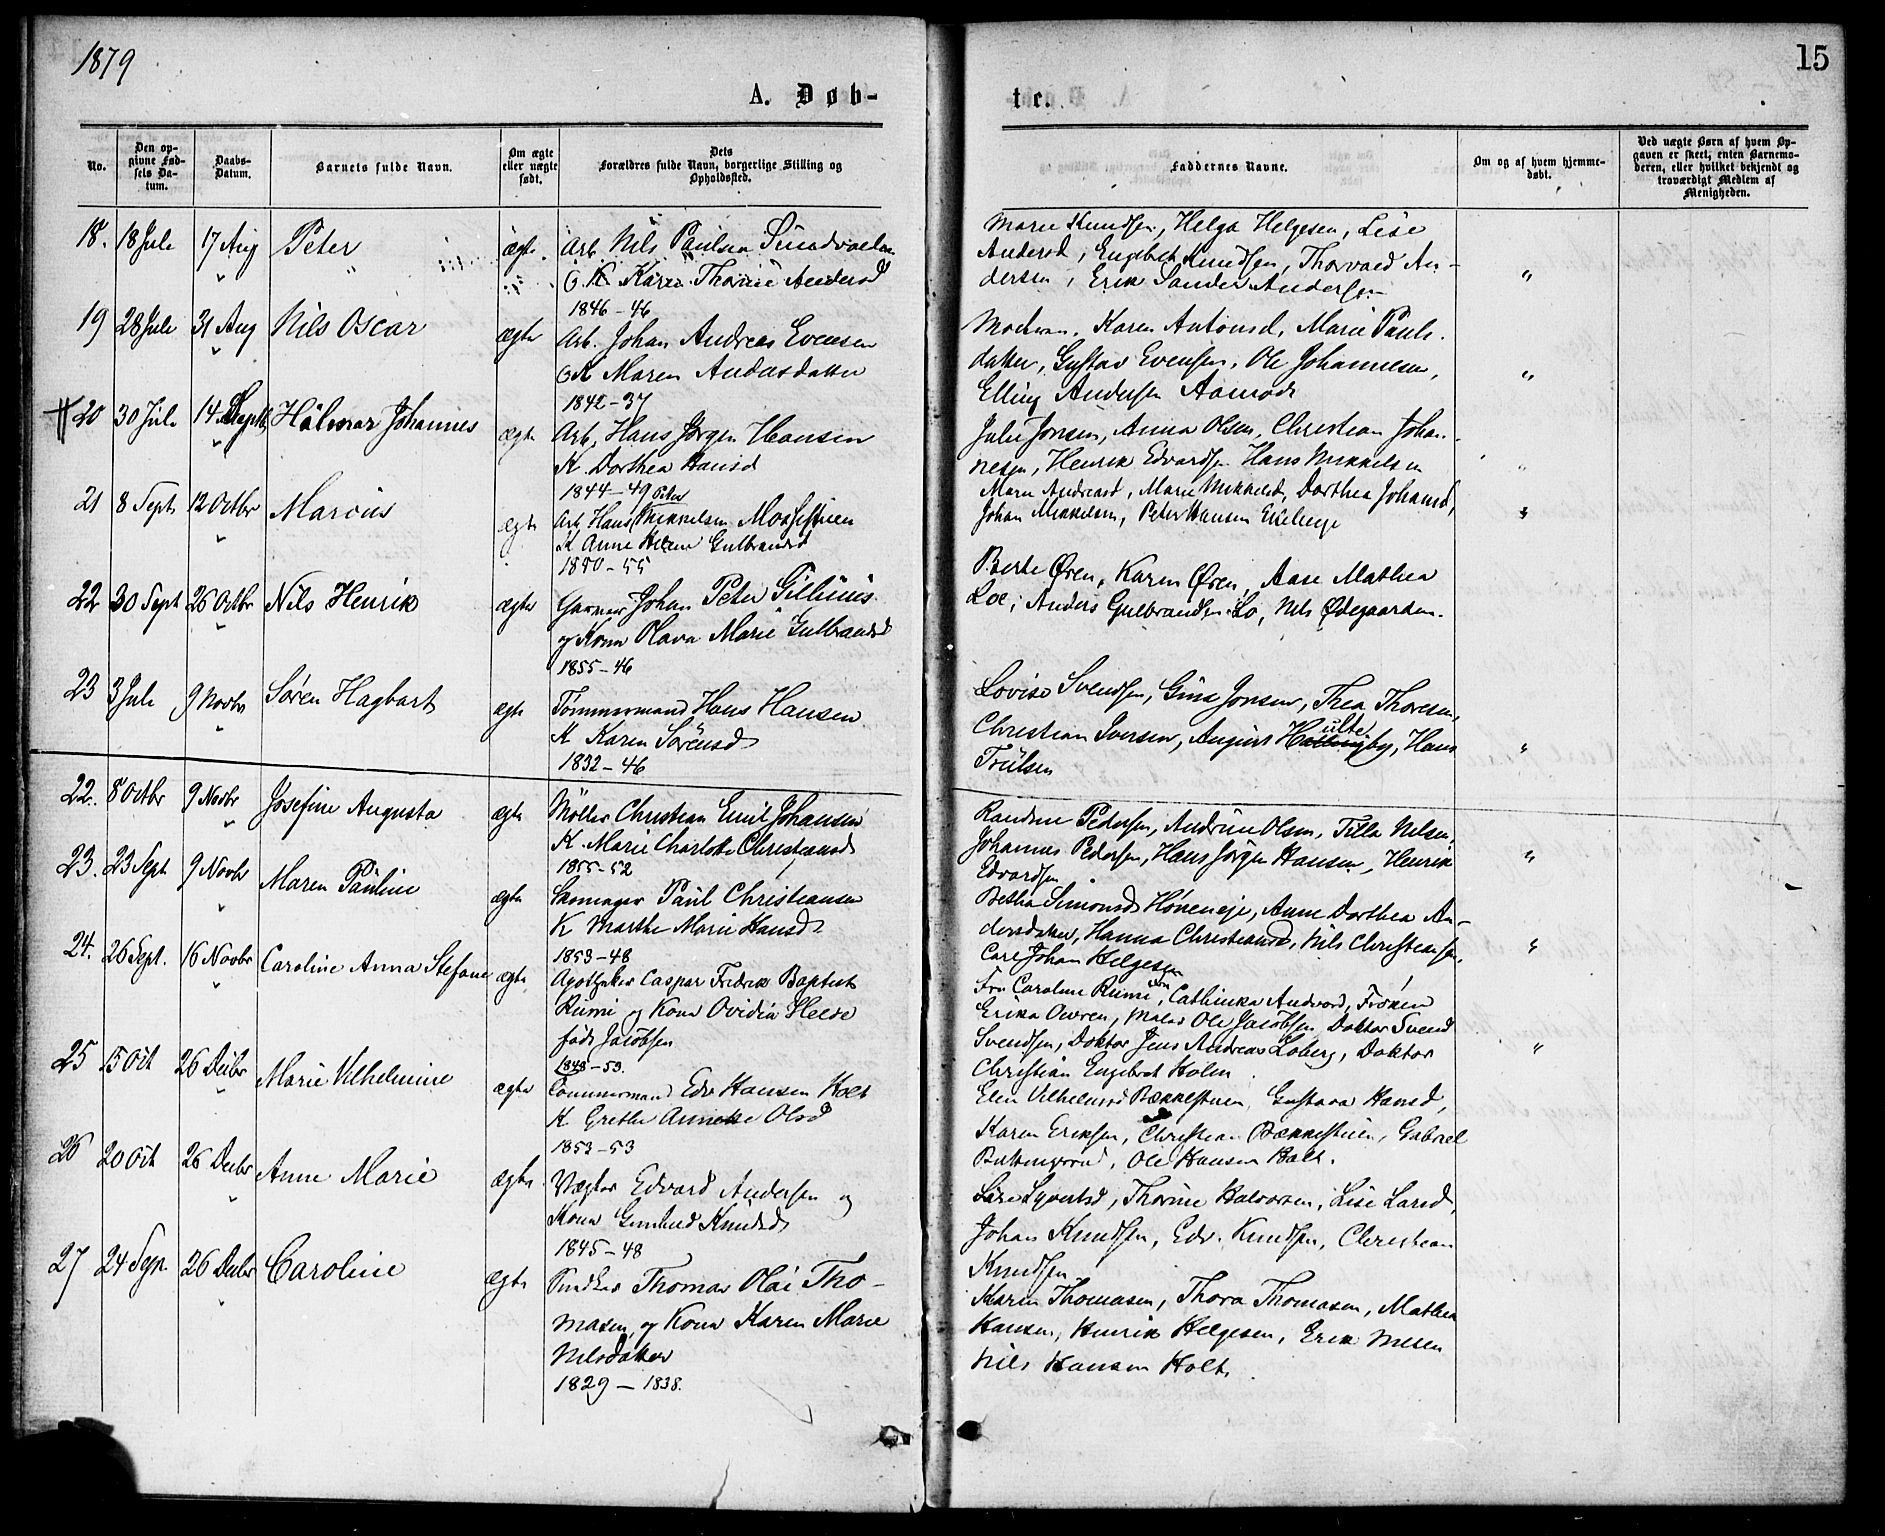 1879
15
A. Døb-
te.
No.
Den op-
givne Fød-
sels Da-
tum.
Daabs-
Datum.
Barnets fulde Navn.
Om ægte
eller uægte
født.
Dets
Forældres fulde Navn, borgerlige Stilling og
Opholdssted.
Faddernes Navne.
Om og af hvem hjemme-
døbt.
Ved uægte Børn af hvem Op-
gaven er skeet, enten Barnemo-
deren, eller hvilket bekjendt og
troværdigt Medlem af
Menigheden.
18. 18 Jule 17 Aug Peter ægte
Arb. Nils Paulsen
K. Karen Thorine Andersd
1846-46
Marie Knudsen, Helga Helgesen, Lise
Andersd, Engebret Knudsen, Thorvald An-
dersen, Erik Sander Andersen
19 28 Jule 31 Aug Nils Oscar ægte
Arb. Johan Andreas Evensen
K Maren Andersdatter
1842-37
Karen Antonsd, Marie Pauls-
datter, Gustav Evensen, Ole Johannesen,
Elling Andersen Aamodt
20 30 Jule 14 Septb Hâlmar Johannes ægte
Arb. Hans Jørgen Hansen
K. Dorthea Hansd
1844-49
Julie Jonsen, Anna Olsen, Christian Johan-
nesen, Henrik Edvardsen Hans Mikkelsen
21 8 Sept 12 Octbr Marius ægte
Arb Hans Peter Mikkelsen
K Anne Helene Gulbrandsd
1850-55
Maren Andreasd, Marie Mikkelsd, Dorthea Johansd,
Johan Mikkelsen, Peter Hansen
22 30 Sept 26 Octbr Nils Henrik ægte
Garver Johan Peter Gillinius
og Kone Olava Marie Gulbrandsd
1855-46
Berte Øren, Karen Øren, Aase Mathea
Loe, Anders Gulbrandsen Lo, Nils Ødegaarden.
23 3 Jule 9 Novbr Søren Hagbart ægte
Tømmermand Hans Hansen
K Karen Sørensd
1832-46
Lovise Svendsen, Gina Jonsen, Thea Thoresen,
Christian Iversen, August Hultby, Hans
Trulsen
22. 8 Octbr 9 Novbr Josefine Augusta ægte
Møller Christian Emil Johansen
K. Marie Charlotte Christiansd
1855-52
Randine Pedersen, Andrine Olsen, Tilla Nilsen,
Johannes Pedersen, Hans Jørgen Hansen, Henrik
Edvardsen
23. 23 Sept 9 Novbr Maren Pauline ægte
Skomager Paul Christiansen
K Marthe Marie Hansd
1853-48
Betha Simonsd Høneneje, Anne Dorthea An-
dersdatter, Hanna Christiansd, Nils Christiansen,
Carl Johan Helgesen
24. 26 Sept. 16 Novbr Caroline Anna Stefane ægte
Apotheker Caspar Fredrik Baptist
Riimi og Kone Ovidia Helde
født Jacobsen
1848-53.
Fru Caroline Riimi, Cathinka Andvord, Frøken
Erika Owren, Maler Ole Jacobsen, Doktor Svend
Svendsen, Doktor Jens Andreas Loberg, Doktor
Christian Engebret Holm.
25 15 Oct 26 Decbr Marie Vilhelmine ægte
Tømmermand Edv Hansen Holt
K Grethe Annette Olsd
1853-53
Elen Vilhelmsd Bækkestuen, Gustava Hansd,
Karen Eriksen, Christian Bækkestuen, Gabriel
Ole Hansen Holt.
26 20 Oct 26 Decbr Anne Marie ægte
Vægter Edvard Andersen og
Kone Gunhild Knudsd
1845-48
Syvertsd, Thorine Halvorsen, Lise Larsd,
Johan Knudsen, Edv. Knudsen, Christian
Knudsen
27 24 Sep. 26 Decbr Caroline ægte
Snedker Thomas Olai Tho-
masen og Kone Karen Marie
Nilsdatter
1829 - 1838.
Karen Thomasen, Thora Thomasen, Mathea
Hansen, Henrik Helgesen, Erik Nilsen
Nils Hansen Holt.